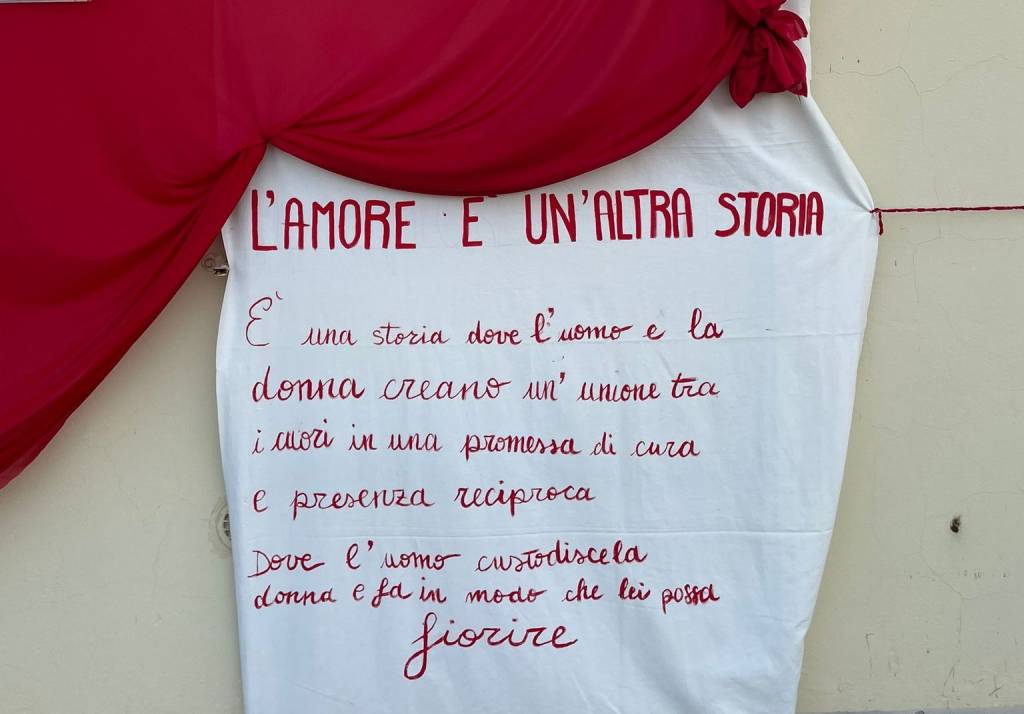 L'AMORE E' UN'ALTRA STORIA
E' una storia dove l'uomo e la
donna creano un' unione tra
i cuori in una promessa di cura
e presenza reciproca
Dove l'uomo custodisce la
donna e fa in modo che lei possa
fiorire